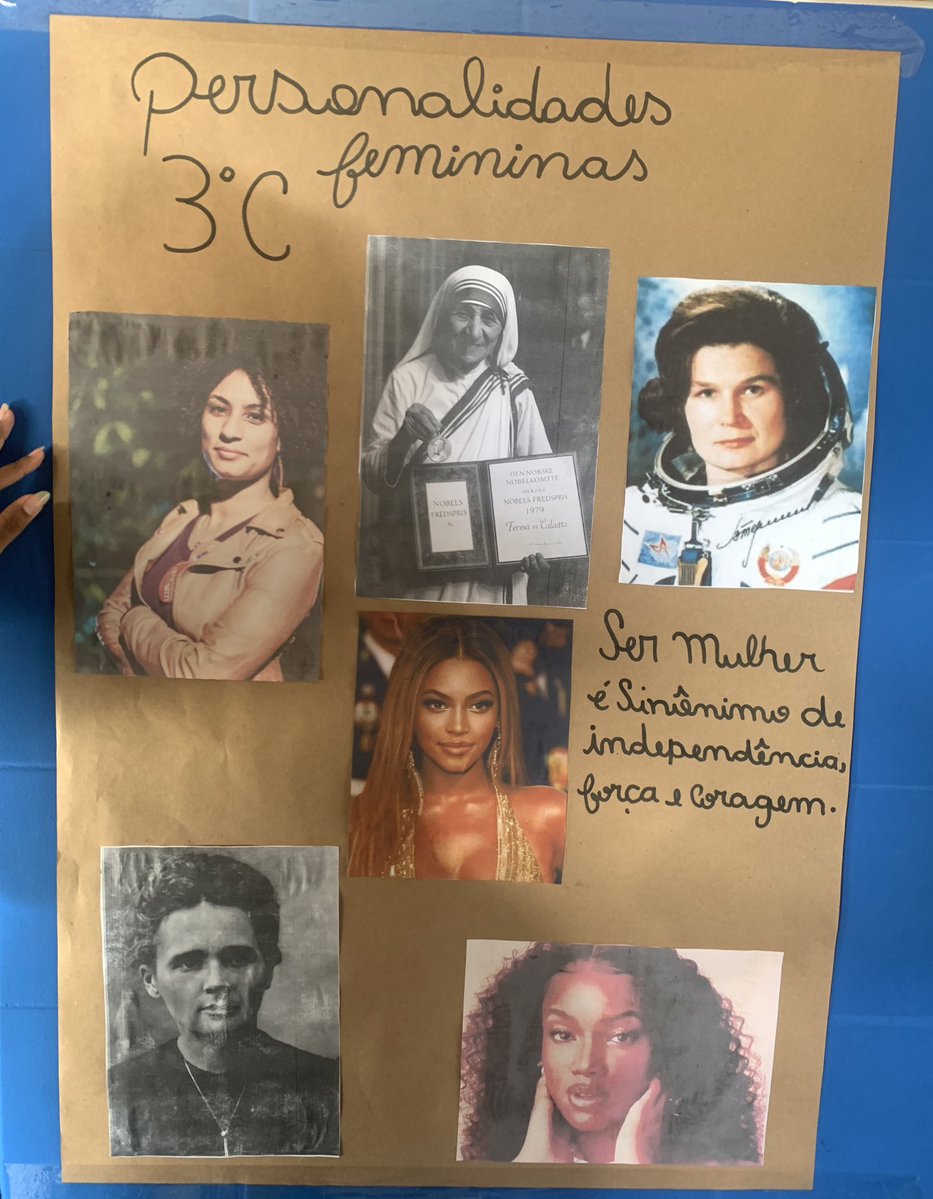 Personalidades
femininas
3°C
NOBELS
FREDSPRIS
DEN NORSKE
NOBELKOMITÉ
NOBELS FREDSPRIS
1979
Teresa
Ser Mulher
é Sinônimo de
independência,
força e Coragem.